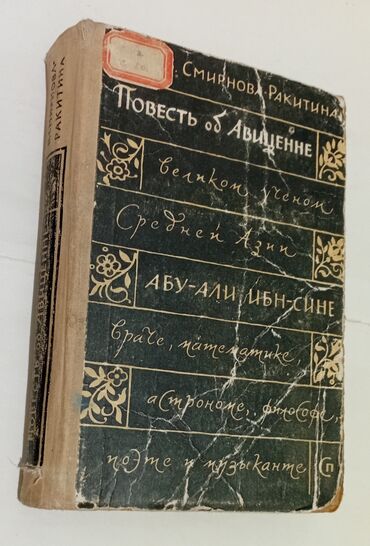 СМИРНОВА-РАКИТИНА
ПОВЕСТЬ об АВИЦЕННЕ
великом ученом
Средней Азии
АБУ-АЛИ ИБН-СИНЕ
враче, математике,
астрономе, философе,
поэте и музыканте
СП
СМИРНОВА-
РАКИТИНА